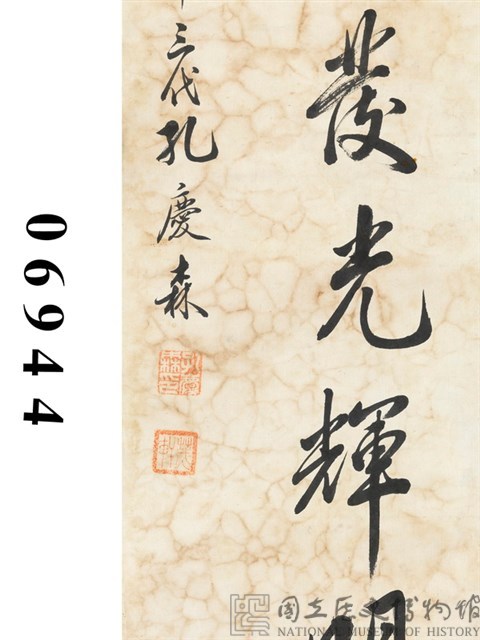 發光輝
三代孔慶森
06944
國立歷史博物館
NATIONAL MUSEUM OF HISTORY